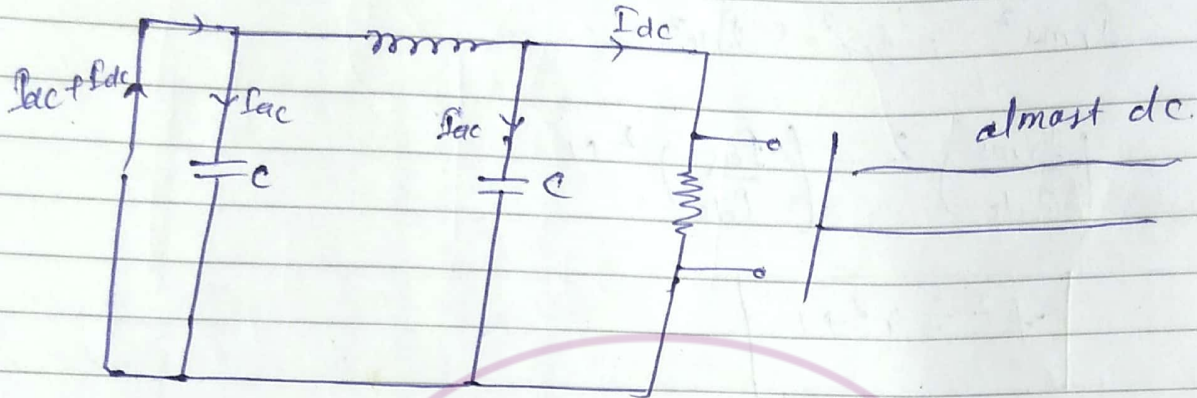 Idc
Iac + Idc
Iac
Iac
almost dc.
C
C